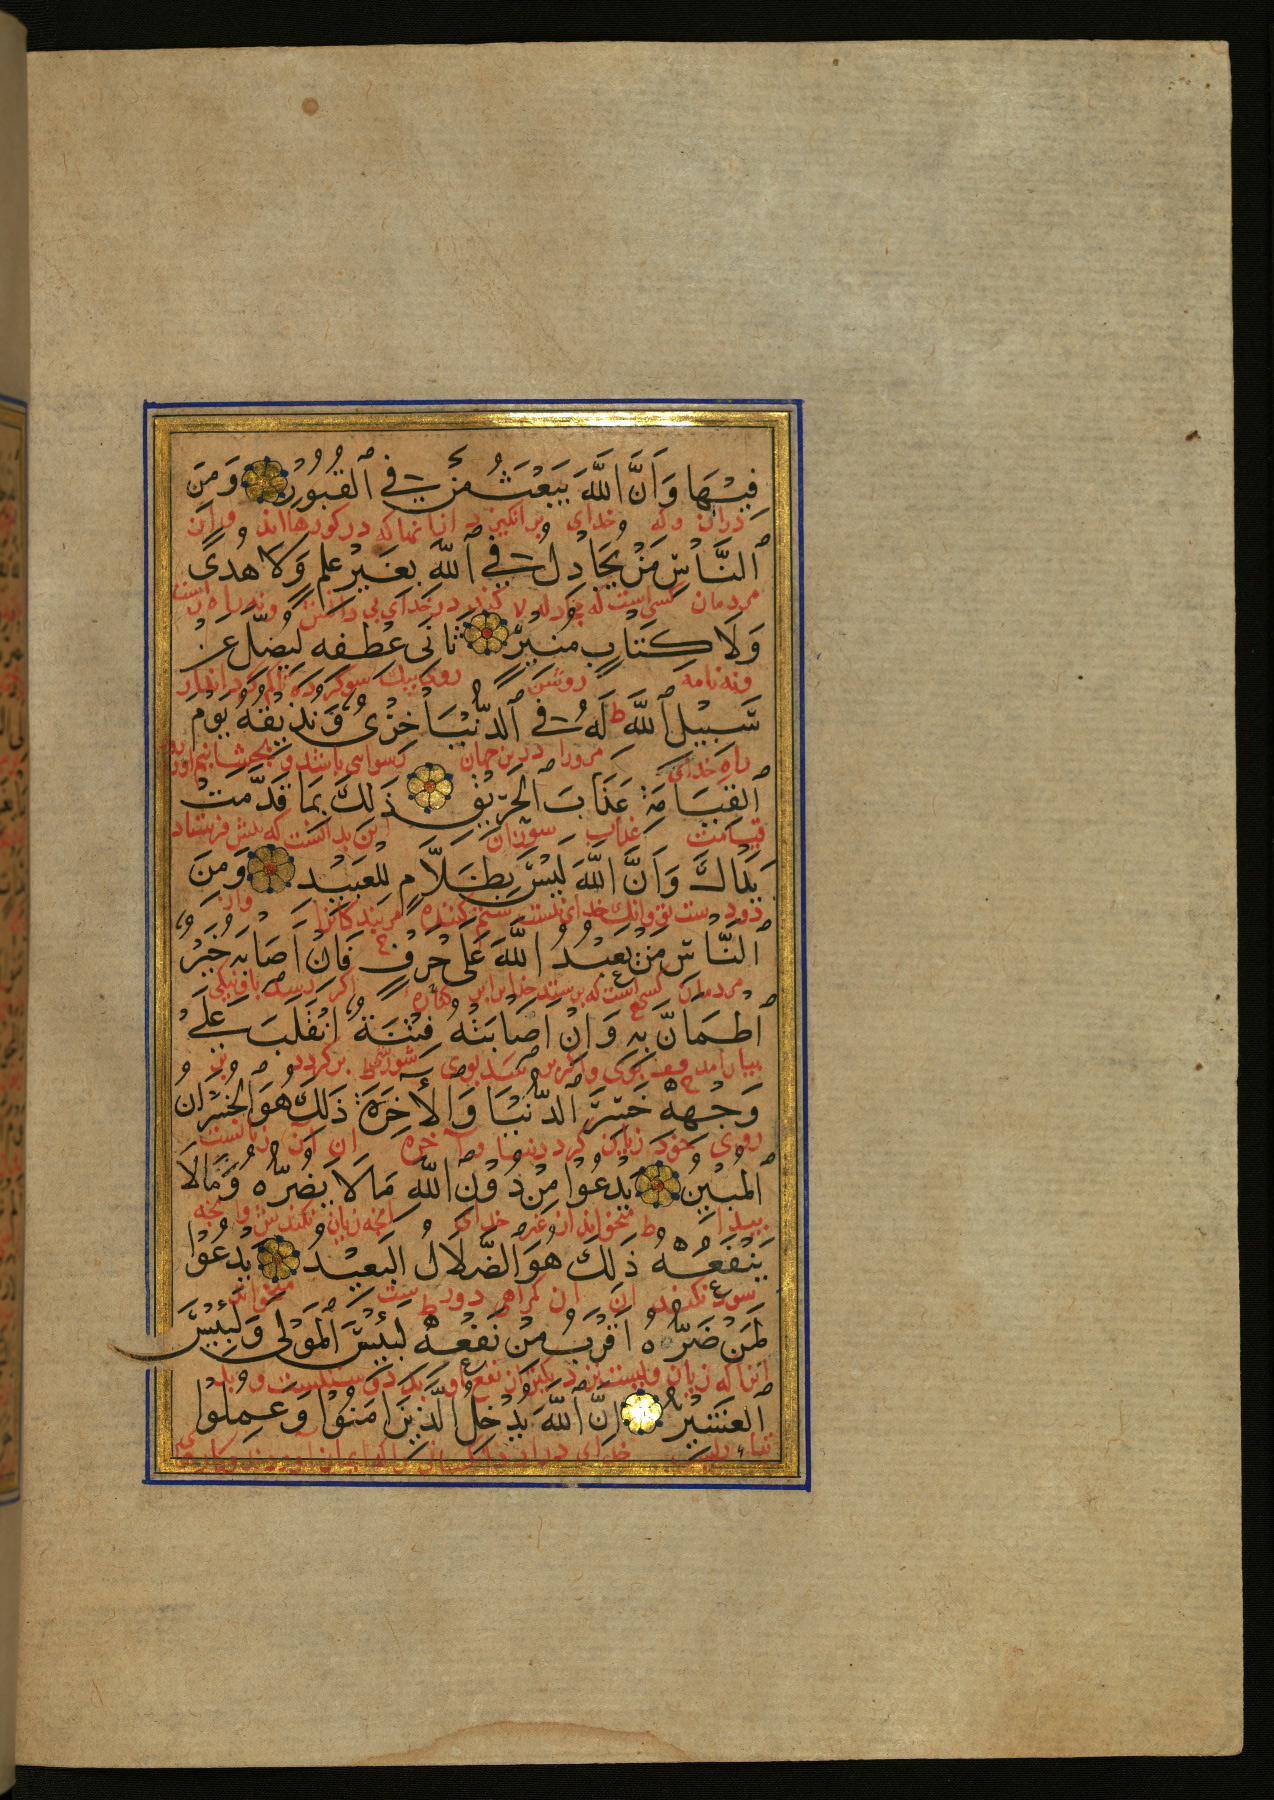 فِيهَا وَاَنَّ اللَّهَ يَبْعَثُ مَنْ فِي ٱلْقُبُورِ وَمِنَ
دران وكه خدای بر انكيزد انانراكه در كورهااند وازن
ٱلنَّاسِ مَنْ يُجَادِلُ فِي ٱللَّهِ بِغَيْرِ عِلْمٍ وَلَا هُدًى
مردمان كسی است كه مجادله كند در خدای بی دانش ونه راه راست
وَلَا كِتَابٍ مُنِيرٍ ثَانِىَ عِطْفِهِ لِيُضِلَّ عَنْ
ونه نامه روشن روی بيك سو كرده تا كم كرداند از
سَبِيلِ ٱللَّهِ لَهُ فِي ٱلدُّنْيَا خِزْىٌ وَنُذِيقُهُ يَوْمَ
راه خدای مرورا درين جهان رسوايی باشد و بچشانيم اورا روز
ٱلْقِيَامَةِ عَذَابَ ٱلْحَرِيقِ ذَلِكَ بِمَا قَدَّمَتْ
قيامت عذاب سوزان اين بدانست كه پيش فرستاد
يَدَاكَ وَاَنَّ اللَّهَ لَيْسَ بِظَلَّامٍ لِلْعَبِيدِ وَمِنَ
دو دست تو وانك خدای نيست ستم كننده مر بندكانرا واز
ٱلنَّاسِ مَنْ يَعْبُدُ اللَّهَ عَلَى حَرْفٍ فَاِنْ اَصَابَهُ خَيْرٌ
مردمان كسی است كه پرستد خدايرا بر كناره اكر رسد باو نيكی
ٱطْمَاَنَّ بِهِ وَاِنْ اَصَابَتْهُ فِتْنَةٌ ٱنْقَلَبَ عَلَى
بيارامد
وَجْهِهِ خَسِرَ ٱلدُّنْيَا وَٱلْأَخِرَةَ ذَلِكَ هُوَ ٱلْخُسْرَانُ
روی خود زيان كرد دنيا و آخره ان آن زيانست
ٱلْمُبِينُ يَدْعُوا مِنْ دُونِ ٱللَّهِ مَا لَا يَضُرُّهُ وَمَا لَا
پيدا ميخواند از غير خدای انچه زيان نكندش وانچه
يَنْفَعُهُ ذَلِكَ هُوَ ٱلضَّلَالُ ٱلْبَعِيدُ يَدْعُوا
سود نكندش ان ان كمراهی دورست ميخواند
لَمَنْ ضَرُّهُ اَقْرَبُ مِنْ نَفْعِهِ لَبِئْسَ ٱلْمَوْلَى وَلَبِئْسَ
انرا كه زيان
ٱلْعَشِيرُ اِنَّ ٱللَّهَ يُدْخِلُ ٱلَّذِينَ اٰمَنُوا وَعَمِلُوا
خدای در ارد